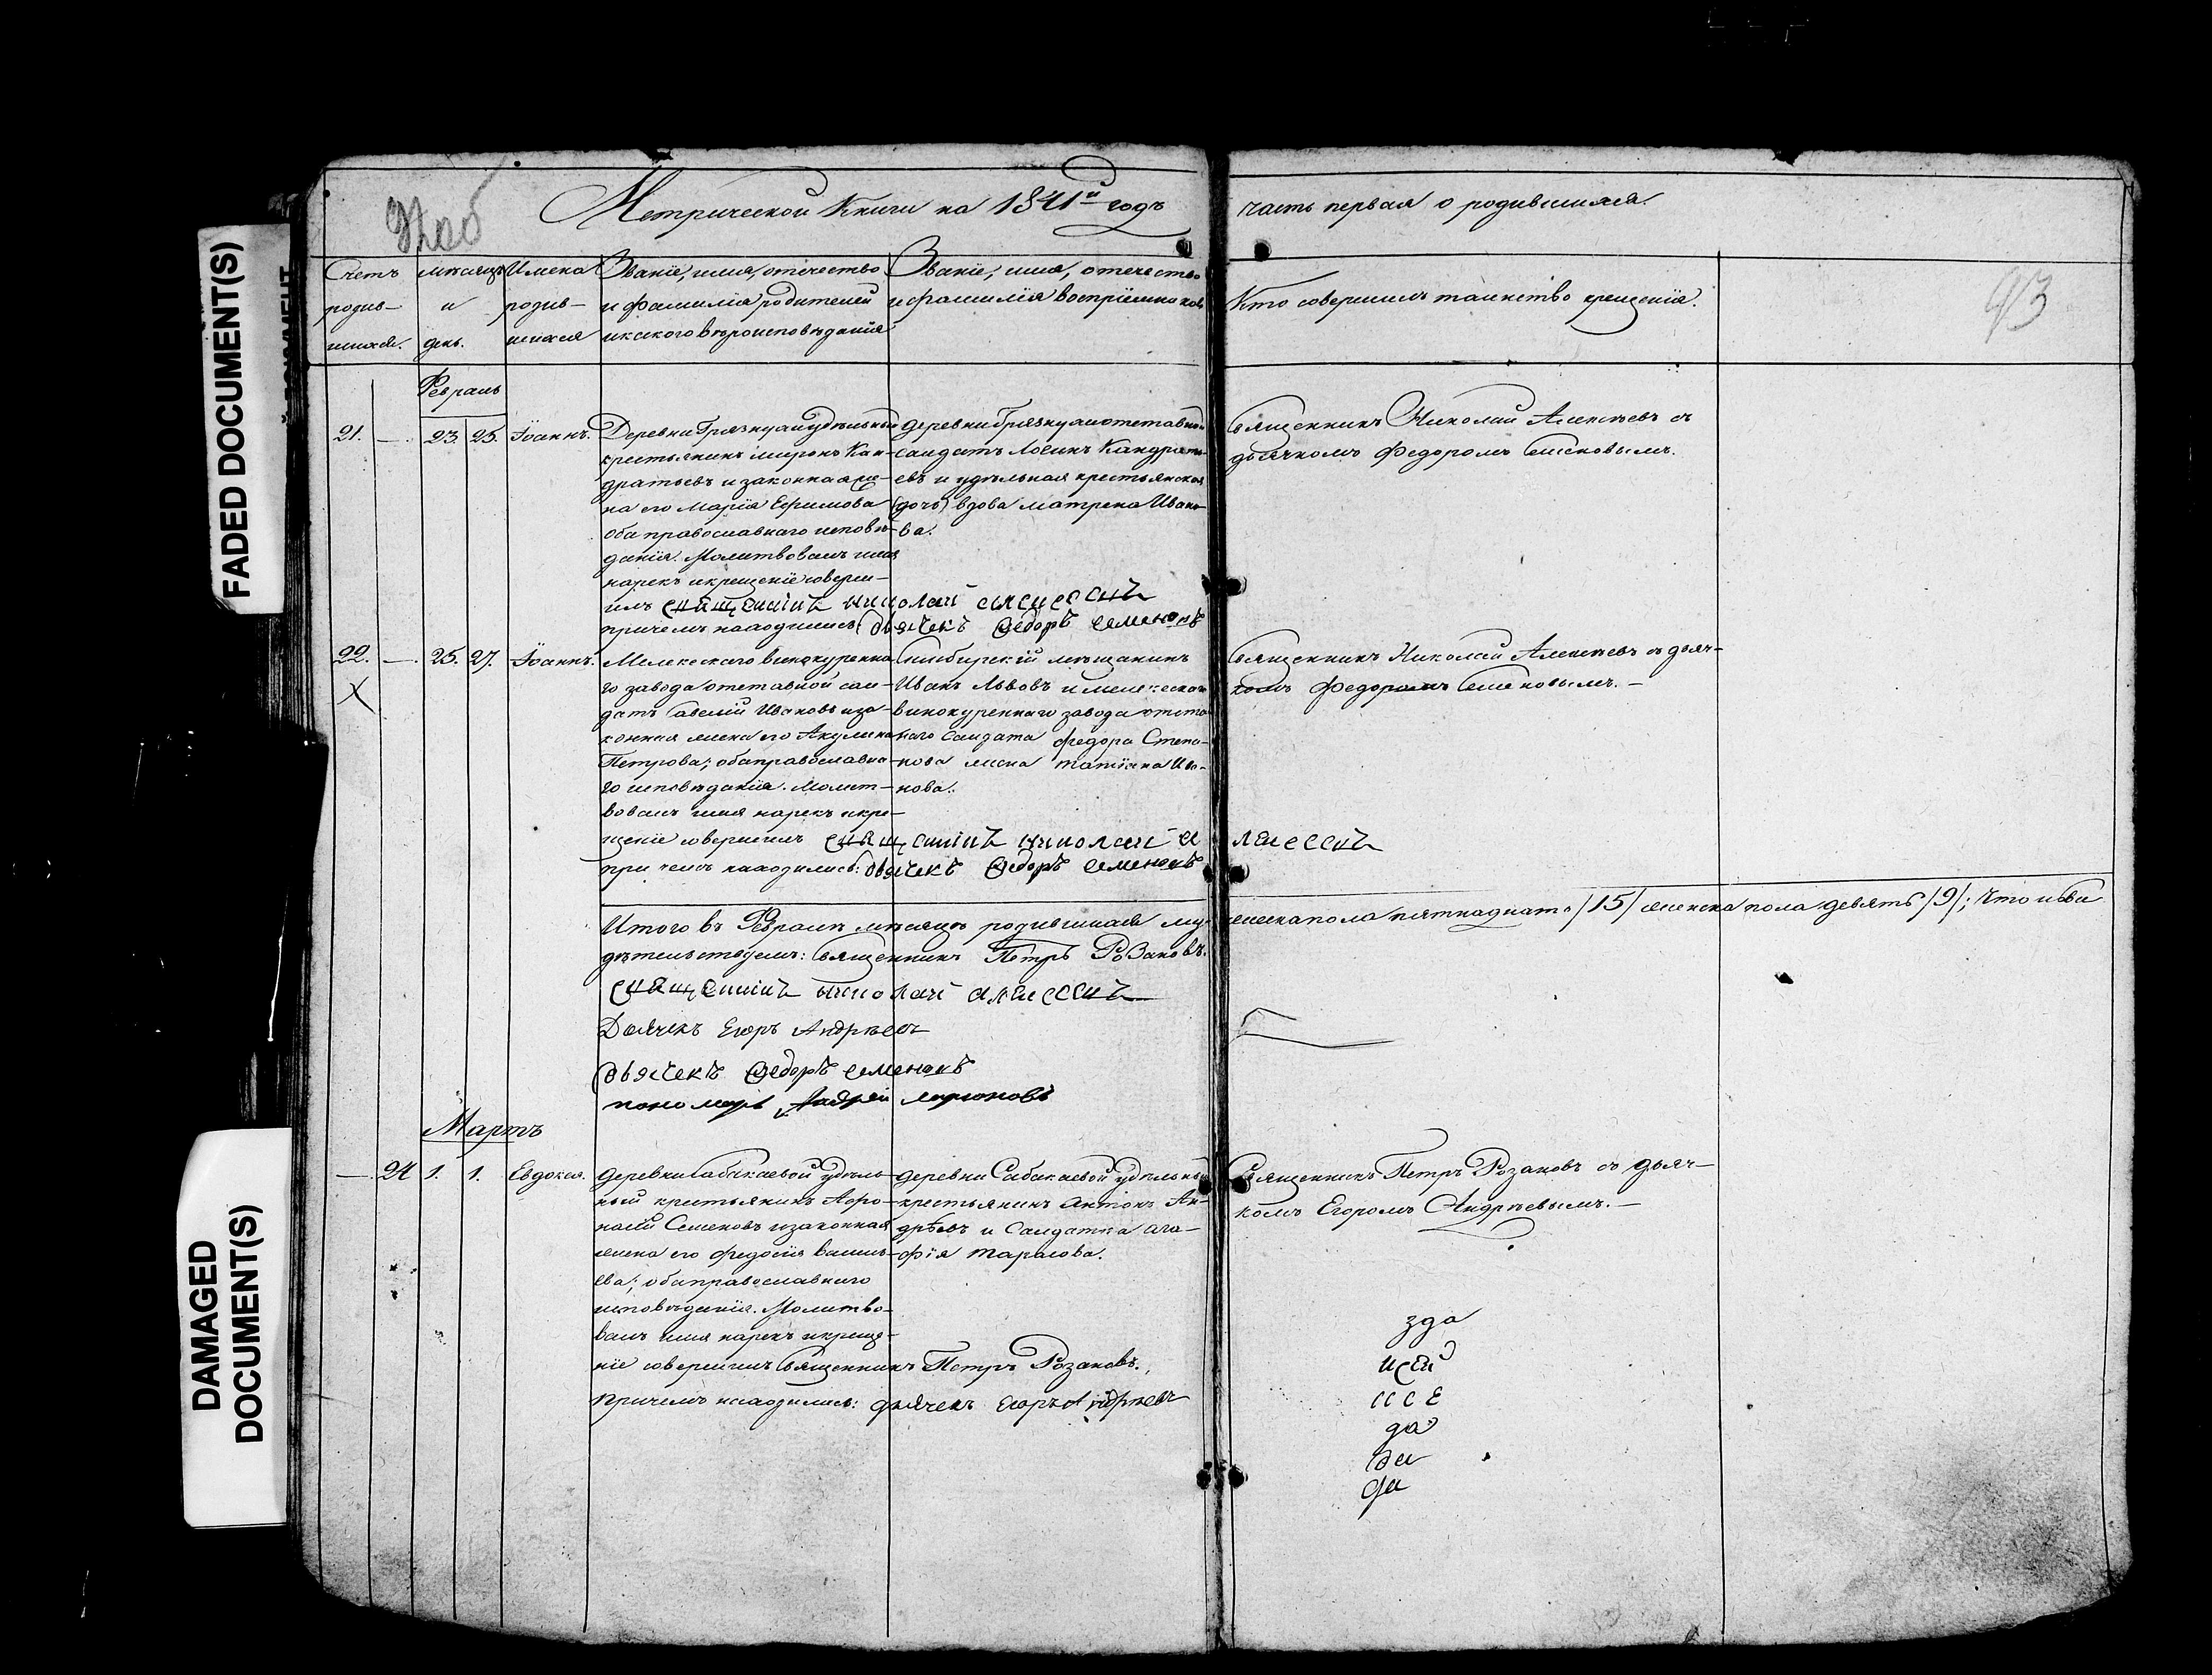 Метрической Книги на 1841й годъ
часть первая о родившихся.
93
Счетъ родив-шихся.
мѣсяцъ и день.
Имена родив-шихся
Званіе, имя, отечество
и фамилія родителей
и какого вѣроисповѣданія
Званіе, имя, отечество
и фамилія воспріемниковъ
Кто совершилъ таинство крещенія.
Февраль
21. — 23. 25. Іоаннъ.
Деревни Грязнухи удѣльный
крестьянинъ Миронъ Кан-
дратьевъ и законная же-
на его Марія Ефимова
оба православнаго исповѣ-
данія. Молитвовалъ имя
нарекъ и крещеніе совер-
илъ священникъ Николай Алексеевъ
при чемъ находились: дьячекъ Федоръ Семеновъ
деревни Грязнухи отставной
салдатъ Логинъ Кандрать-
евъ и удѣльная крестьянская
(дочь) вдова Матрена Ивано-
ва.
Священникъ Николай Алексѣевъ съ
дьячкомъ Федоромъ Семеновымъ.
22. — 25. 27. Іоаннъ.
Х
Мелекескаго винокуренна-
го завода отставной сал-
датъ Савелій Ивановъ и за-
конная жена его Акулина
Петрова; оба православна-
го исповѣданія. Молит-
вовалъ имя нарекъ и кре-
щеніе совершилъ священникъ Николай Алексеевъ
при чемъ находились: дьячекъ Федоръ Семеновъ
Симбирскій мѣщанинъ
Иванъ Львовъ и мелекескаго
винокуреннаго завода отста
наго салдата Федора Степа-
нова жена Татіана Ива-
нова.
Священникъ Николай Алексѣевъ съ дьяч-
комъ Федоромъ Семеновымъ. —
Итого въ Февралѣ мѣсяцѣ родившихся мужеска пола пятнадцать /15/ женска пола девять /9/; Что и сви
дѣтельствуемъ: Священникъ Петръ Розановъ.
священникъ Николай Алексеевъ
Дьячекъ Егоръ Андрѣевъ
дьячекъ Федоръ Семеновъ
пономарь Андрей Мироновъ
Мартъ
— 24 1. 1. Евдокия.
деревни Сабакаевой удѣль-
ный крестьянинъ Афо-
насій Семеновъ и законная
жена его Федосия Василь-
ева; оба православнаго
исповѣданія. Молитво-
валъ имя нарекъ и креще-
ніе совершилъ Священникъ Петръ Розановъ.
При чемъ находились: дьячекъ Егоръ Андрѣевъ
деревни Сабакаевой удѣльный
крестьянинъ Антонъ Ан-
дрѣевъ и Салдатка Ага-
фія Тарасова.
Священникъ Петръ Розановъ съ дьяч-
комъ Егоромъ Андрѣевымъ. —
зда
да
да
да
FADED DOCUMENT(S)
DAMAGED DOCUMENT(S)